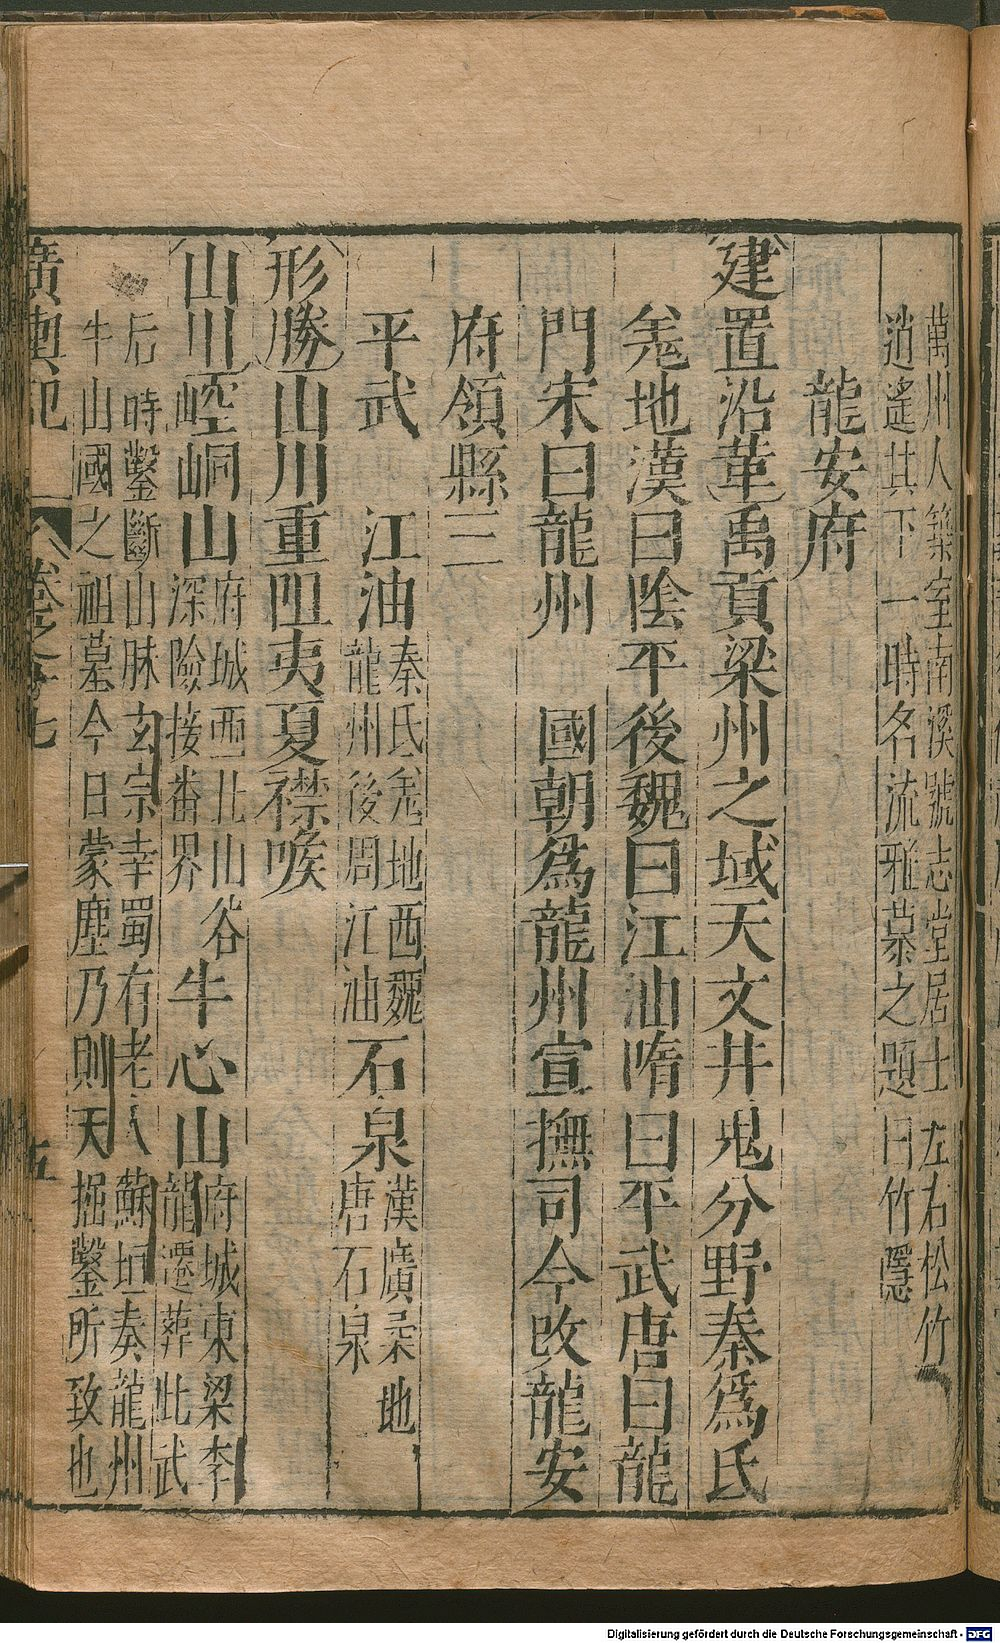 萬州人築室南溪號志堂居士左右松竹
逍遙其下一時名流雅慕之題曰竹隱
龍安府
建置沿革禹貢梁州之域天文井鬼分野秦爲氐
羌地漢曰陰平後魏曰江油隋曰平武唐曰龍
門宋曰龍州 國朝爲龍州宣撫司今改龍安
府領縣三
平武 江油秦氐羌地西魏龍州後周江油石泉漢廣柔地唐石泉
形勝山川重阻夷夏襟喉
山川崆峒山府城西北山谷深險接番界牛心山府城東梁李龍遷葬此武
后時鑿斷山脉玄宗幸蜀有老人蘇垣奏龍州
牛山國之祖墓今日蒙塵乃則天掘鑿所致也
廣輿記 卷之十七 五
Digitalisierung gefördert durch die Deutsche Forschungsgemeinschaft - DFG